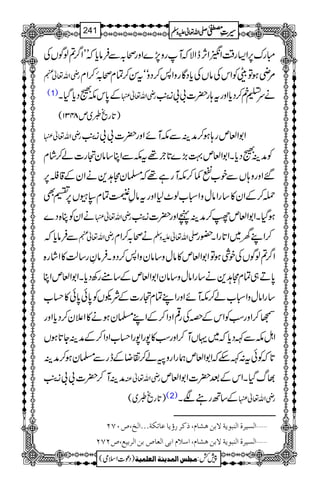 سیرتِ مصطفیٰ صلی اللہ تعالیٰ علیہ وسلم
241
مبارک پر ایسا رقت انگیز اثر ڈالا کہ آپ رو پڑے اور صحابہ سے فرمایا کہ ''اگر تم لوگوں کی
مرضی ہو تو بیٹی کو اس کی ماں کی یادگار واپس کر دو'' یہ سن کر تمام صحابہ کرام رضی اللہ تعالیٰ عنہم
نے سر تسلیم خم کر دیا اور یہ ہار حضرت بی بی زینب رضی اللہ تعالیٰ عنہا کے پاس مکہ بھیج دیا گیا۔(1)
(تاریخ طبری ص ۱۳۴۸)
ابوالعاص رہا ہو کر مدینہ سے مکہ آئے اور حضرت بی بی زینب رضی اللہ تعالیٰ عنہا
کو مدینہ بھیج دیا۔ ابوالعاص بہت بڑے تاجر تھے یہ مکہ سے اپنا سامان تجارت لے کر شام
گئے اور وہاں سے خوب نفع کما کر مکہ آ رہے تھے کہ مسلمان مجاہدین نے ان کے قافلہ پر
حملہ کر کے ان کا سارا مال و اسباب لوٹ لیا اور یہ مال غنیمت تمام سپاہیوں پر تقسیم بھی
ہو گیا۔ ابوالعاص چھپ کر مدینہ پہنچے اور حضرت زینب رضی اللہ تعالیٰ عنہا نے ان کو پناہ دے
کر اپنے گھر میں اتارا۔ حضور صلی اللہ تعالیٰ علیہ وسلم نے صحابہ کرام رضی اللہ تعالیٰ عنہم سے فرمایا کہ
اگر تم لوگوں کی خوشی ہو تو ابوالعاص کا مال و سامان واپس کر دو۔ فرمانِ رسالت کا اشارہ
پاتے ہی تمام مجاہدین نے سارا مال و سامان ابوالعاص کے سامنے رکھ دیا۔ ابوالعاص اپنا
سارا مال و اسباب لے کر مکہ آئے اور اپنے تمام تجارت کے شریکوں کو پائی پائی کا حساب
سمجھا کر اور سب کو اس کے حصہ کی رقم ادا کر کے اپنے مسلمان ہونے کا اعلان کر دیا اور
اہل مکہ سے کہہ دیا کہ میں یہاں آ کر اور سب کا پورا پورا حساب ادا کر کے مدینہ جاتا ہوں
تاکہ کوئی یہ نہ کہہ سکے کہ ابوالعاص ہمارا روپیہ لے کر تقاضا کے ڈر سے مسلمان ہو کر مدینہ
بھاگ گیا۔ اس کے بعد حضرت ابوالعاص رضی اللہ تعالیٰ عنہ مدینہ آ کر حضرت بی بی زینب
رضی اللہ تعالیٰ عنہا کے ساتھ رہنے لگے۔(2) (تاریخ طبری)
السیرۃ النبویۃ لابن ہشام، ذکر رؤیا عاتکۃ...الخ، ص ۲۷۰
السیرۃ النبویۃ لابن ہشام، اسلام ابی العاص بن الربیع، ص ۲۷۲
پیش کش: مجلس المدینۃ العلمیۃ (دعوت اسلامی)